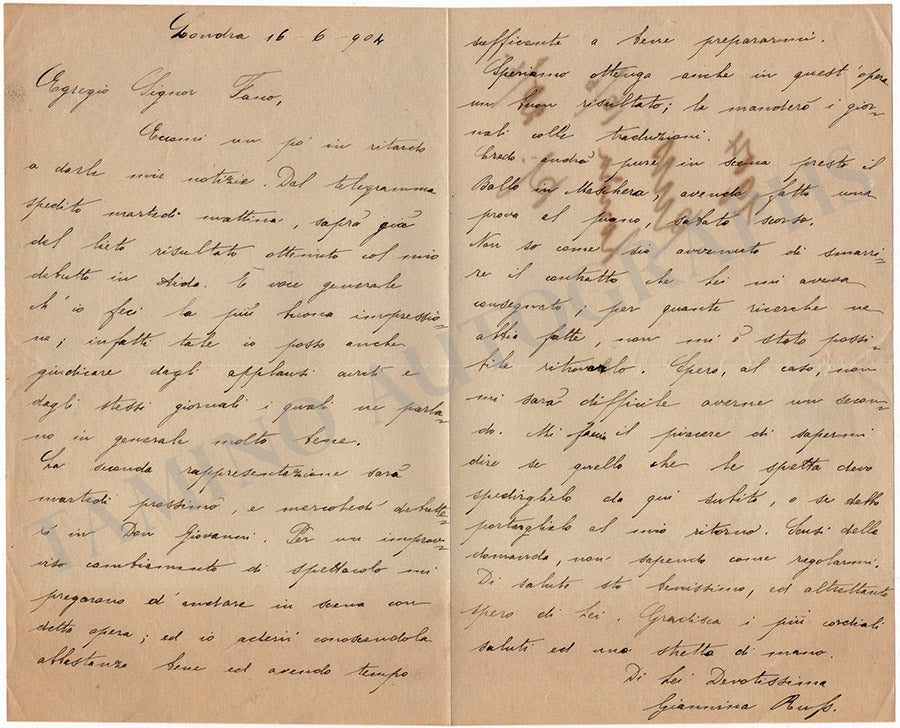 Londra 16-6-904
Egregio Signor Fano,
Eccomi un pò in ritardo
a darle mie notizie. Dal telegramma
spedito martedì mattina, saprà già
del lieto risultato ottenuto col mio
debutto in Aida. È voce generale
ch'io feci la più buona impressio-
ne; infatti tale io posso anche
giudicare dagli applausi avuti e
dagli stessi giornali i quali ne parla-
no in generale molto bene.
La seconda rappresentazione sarà
martedì prossimo, e mercoledì debutte-
rò in Don Giovanni. Per un improv-
viso cambiamento di spettacolo mi
pregarono d'andare in scena con
detta opera; ed io aderii conoscendola
abbastanza bene ed avendo tempo
sufficente a bene prepararmi.
Speriamo ottenga anche in quest'opera
un buon risultato; le manderò i gior-
nali colle traduzioni.
Credo andrà pure in scena presto il
Ballo in Maschera, avendo fatto una
prova al piano, sabato scorso.
Non so come sia avvenuto di smarri-
re il contratto che Lei mi aveva
consegnato; per quante ricerche ne
abbia fatte, non mi è stato possi-
bile ritrovarlo. Spero, al caso, non
mi sarà difficile averne un secon-
do. Mi faccia il piacere di sapermi
dire se quello che le spetta devo
spedirglielo da qui subito, o se debbo
portarglielo al mio ritorno. Scusi della
domanda, non sapendo come regolarmi.
Di salute sto benissimo, ed altrettanto
spero di Lei. Gradisca i più cordiali
saluti ed una stretta di mano.
Di Lei Devotissima
Giannina Russ.
TAMINO AUTOGRAPHS